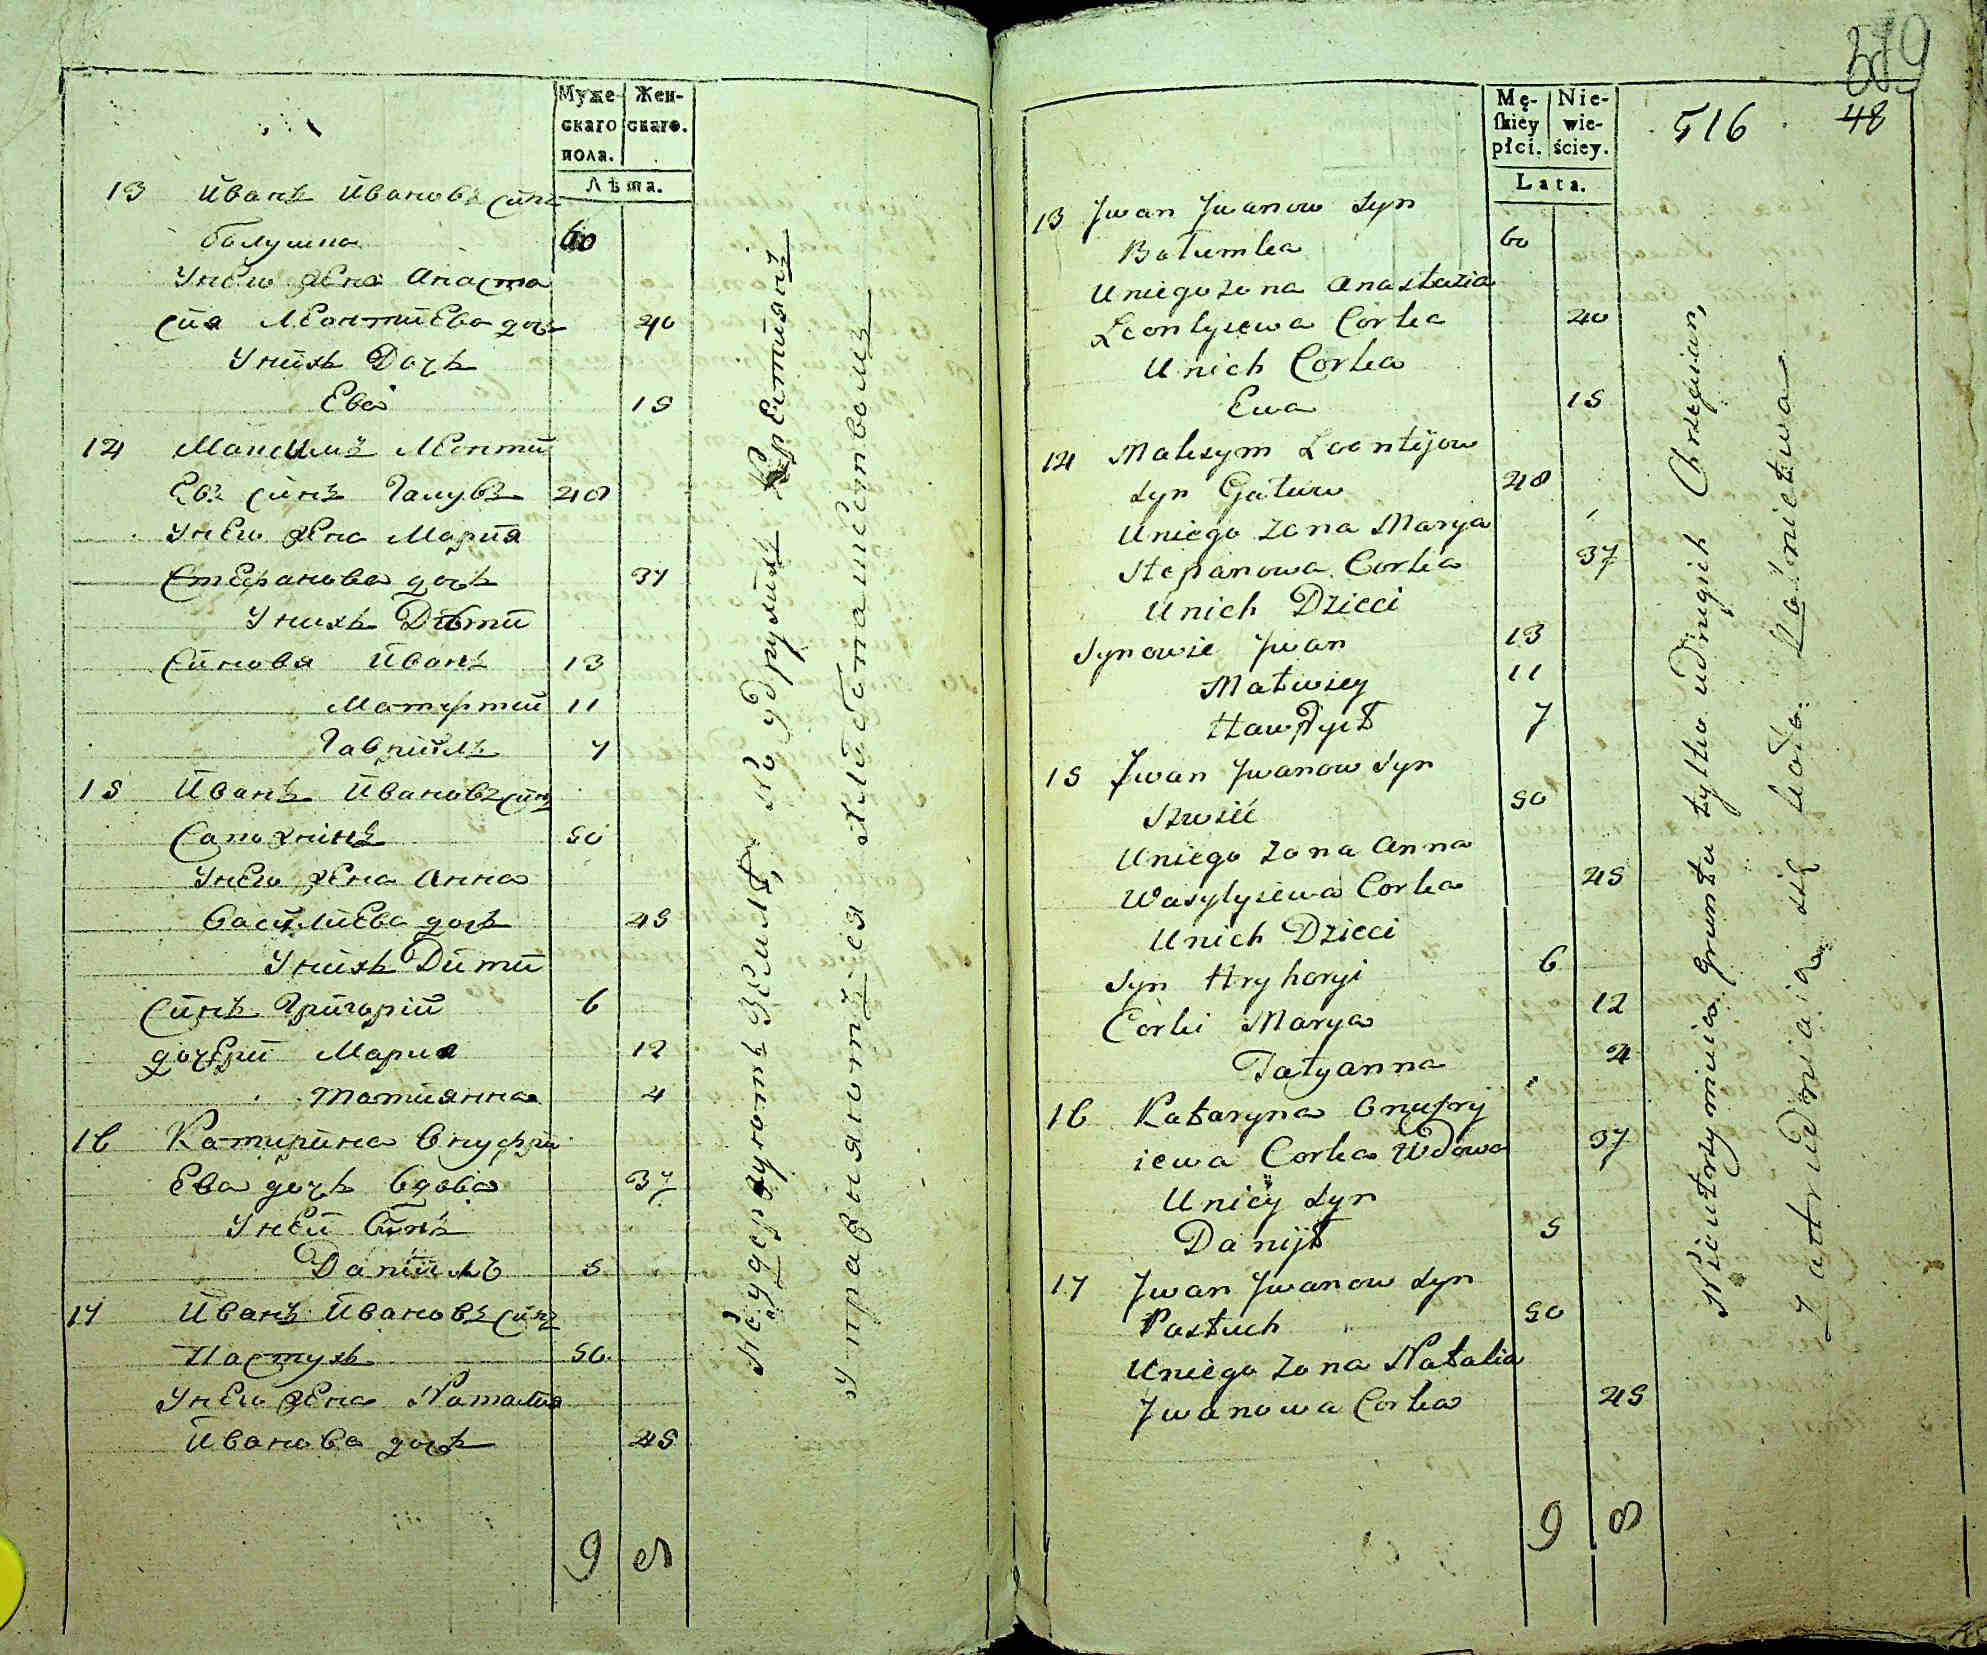 Муже-
скаго
пола.
Жен-
скаго.
Лѣта.
13 Иванъ Ивановъ синъ
балушка 60
Унего жена Анаста
сия Леонтиева дочь 40
Унихъ Дочь
Ева 15
14 Максимъ Леонтий
Евъ синъ Галувъ 48
Унего жена Мария
Стефанова дочь 37
Унихъ Дѣти
Синовя Иванъ 13
Матфтий 11
Гаврiилъ 7
15 Иванъ Ивановъ синъ
50
Унего жена Анна
Василиева дочь 45
Унихъ Дити
Синъ Григорiй 6
дочери Мария 12
Татиянна 4
16 Катирина Ануфри
Ева дочь вдова 37
Уней Синъ
Данiилъ 5
17 Иванъ Ивановъ синъ
Пастухъ 50
Унего жена Наталия
Иванова дочь 45
9 8
Неудержуютъ Землѣ, но удругихъ Крестиянъ
упражняютъся хлѣбопашествомъ
589
516 48
Mę-
ſkiey
płci.
Nie-
wie-
ściey.
Lata.
13 Jwan Jwanow syn
Batumka 60
Uniego zona Anastazia
Leontyiewa Corka 40
Unich Corka
Ewa 15
14 Maksym Leontijow
syn Gatuw 48
Uniego zona Marya
Stepanowa Corka 37
Unich Dzieci
Synowie Jwan 13
Matwiey 11
Hawryił 7
15 Jwan Jwanow Syn
50
Uniego zona Anna
Wasylyiewa Corka 45
Unich Dzieci
Syn Hryhoryi 6
Corki Marya 12
Tatyanna 4
16 Kataryna Onufry
iewa Corka Wdowa 37
Unieÿ syn
Danijł 5
17 Jwan Jwanow syn
Pastuch 50
Uniego zona Natalia
Jwanowa Corka 45
9 8
Nieutrzymuia gruntu tylko udrugich Chrzescian,
Zatrudniaia się koło Rolnictwa